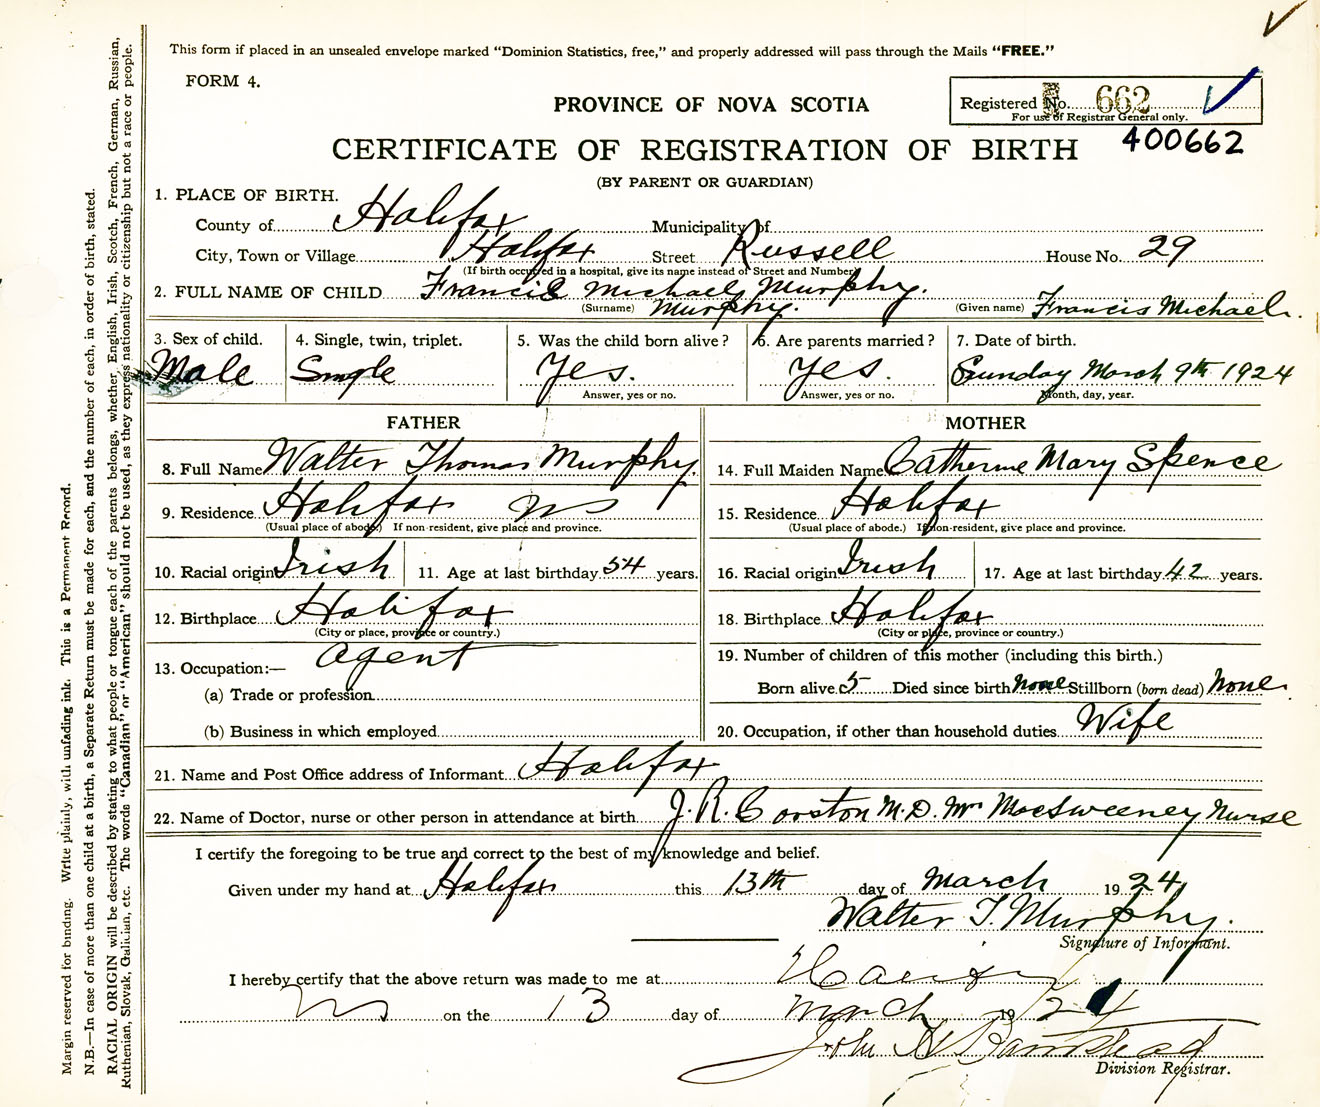 This form if placed in an unsealed envelope marked “Dominion Statistics, free,” and properly addressed will pass through the Mails “FREE.”
FORM 4.
PROVINCE OF NOVA SCOTIA
Registered No. 662
For use of Registrar General only.
400662
CERTIFICATE OF REGISTRATION OF BIRTH
(BY PARENT OR GUARDIAN)
1. PLACE OF BIRTH.
County of Halifax Municipality of
City, Town or Village Halifax Street Russell House No. 29
(If birth occurred in a hospital, give its name instead of Street and Number)
2. FULL NAME OF CHILD Francis Michael Murphy.
(Surname) Murphy. (Given name) Francis Michael.
3. Sex of child. 4. Single, twin, triplet. 5. Was the child born alive? 6. Are parents married? 7. Date of birth.
Male Single Yes. Yes. Sunday March 9th 1924
Answer, yes or no. Answer, yes or no. Month, day, year.
FATHER MOTHER
8. Full Name Walter Thomas Murphy. 14. Full Maiden Name Catherine Mary Spence
9. Residence Halifax NS 15. Residence Halifax
(Usual place of abode.) If non-resident, give place and province. (Usual place of abode.) If non-resident, give place and province.
10. Racial origin Irish 11. Age at last birthday 54 years. 16. Racial origin Irish 17. Age at last birthday 42 years.
12. Birthplace Halifax 18. Birthplace Halifax
(City or place, province or country.) (City or place, province or country.)
13. Occupation:— Agent
19. Number of children of this mother (including this birth.)
(a) Trade or profession Born alive 5 Died since birth None Stillborn (born dead) None.
(b) Business in which employed 20. Occupation, if other than household duties Wife
21. Name and Post Office address of Informant Halifax
22. Name of Doctor, nurse or other person in attendance at birth J. R. Corston M.D. Mrs MacSweeney Nurse
I certify the foregoing to be true and correct to the best of my knowledge and belief.
Given under my hand at Halifax this 13th day of March 1924
Walter T. Murphy.
Signature of Informant.
I hereby certify that the above return was made to me at Halifax
NS on the 13 day of March 1924
John H
Division Registrar.
Margin reserved for binding. Write plainly, with unfading ink. This is a Permanent Record.
N.B.—In case of more than one child at a birth, a Separate Return must be made for each, and the number of each, in order of birth, stated.
RACIAL ORIGIN will be described by stating to what people or tongue each of the parents belongs, whether English, Irish, Scotch, French, German, Russian,
Ruthenian, Slovak, Galician, etc. The words “Canadian” or “American” should not be used, as they express nationality or citizenship but not a race or people.